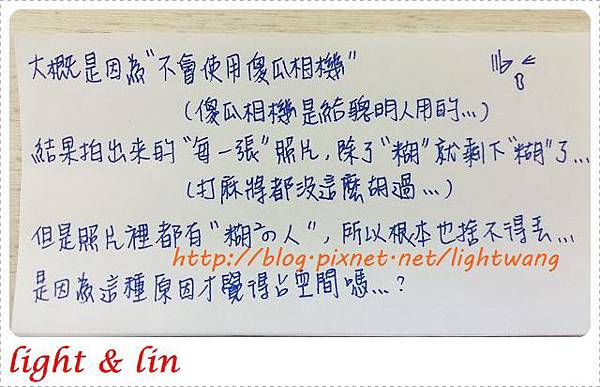 大概是因為"不會使用傻瓜相機"
(傻瓜相機是給聰明人用的...)
結果拍出來的"每一張"照片,除了"糊"就剩下"糊"了...
(打麻將都沒這麼胡過...)
但是照片裡都有"糊の人",所以根本也捨不得丟...
http://blog.pixnet.net/lightwang
是因為這種原因才覺得占空間嗎...?
light & lin